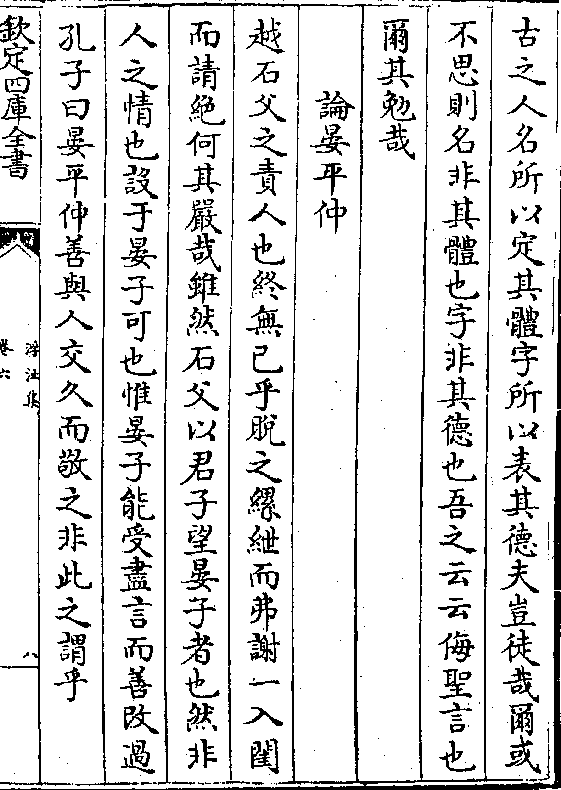 古之人名所以定其體字所以表其德夫豈徒哉爾或
不思則名非其體也字非其德也吾之云云侮聖言也
爾其勉哉
論晏平仲
越石父之責人也終無已乎脫之縲紲而弗謝一入閨
而請絶何其嚴哉雖然石父以君子望晏子者也然非
人之情也設于晏子可也惟晏子能受盡言而善改過
孔子曰晏平仲善與人交久而敬之非此之謂乎
欽定四庫全書
卷六
八